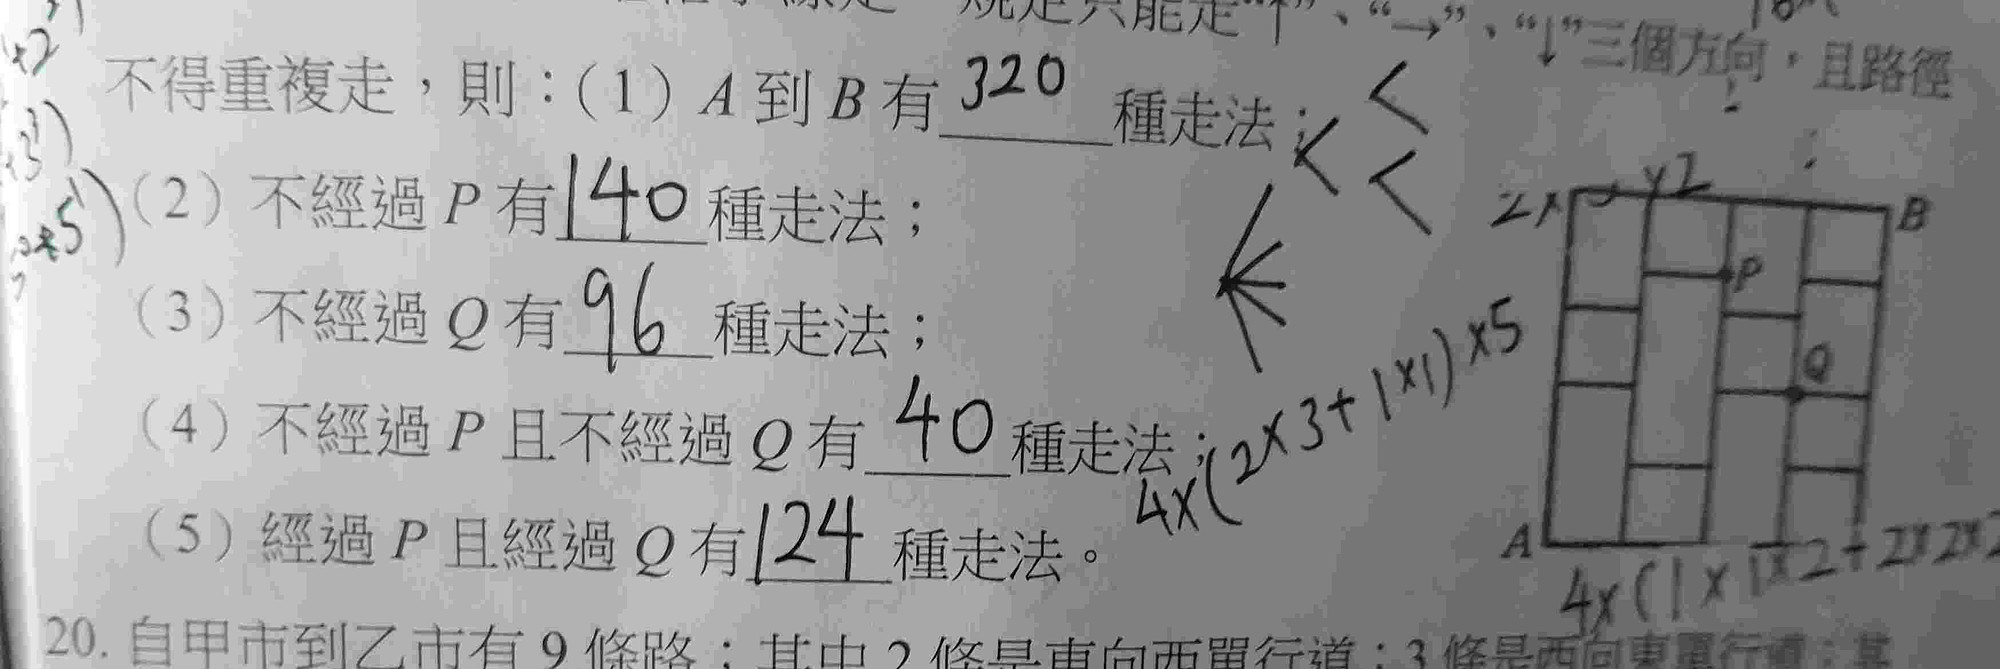 規定只能走“↑”、“→”、“↓”三個方向，且路徑
不得重複走，則：(1) A 到 B 有 320 種走法；
(2) 不經過 P 有 140 種走法；
(3) 不經過 Q 有 96 種走法；
(4) 不經過 P 且不經過 Q 有 40 種走法；
(5) 經過 P 且經過 Q 有 124 種走法。
4×(2×3+1×1)×5
B
P
Q
A
4×(1×1×2+2×2×2
20. 自甲市到乙市有 9 條路；其中 2 條是東向西單行道；3 條是西向東單行道；其